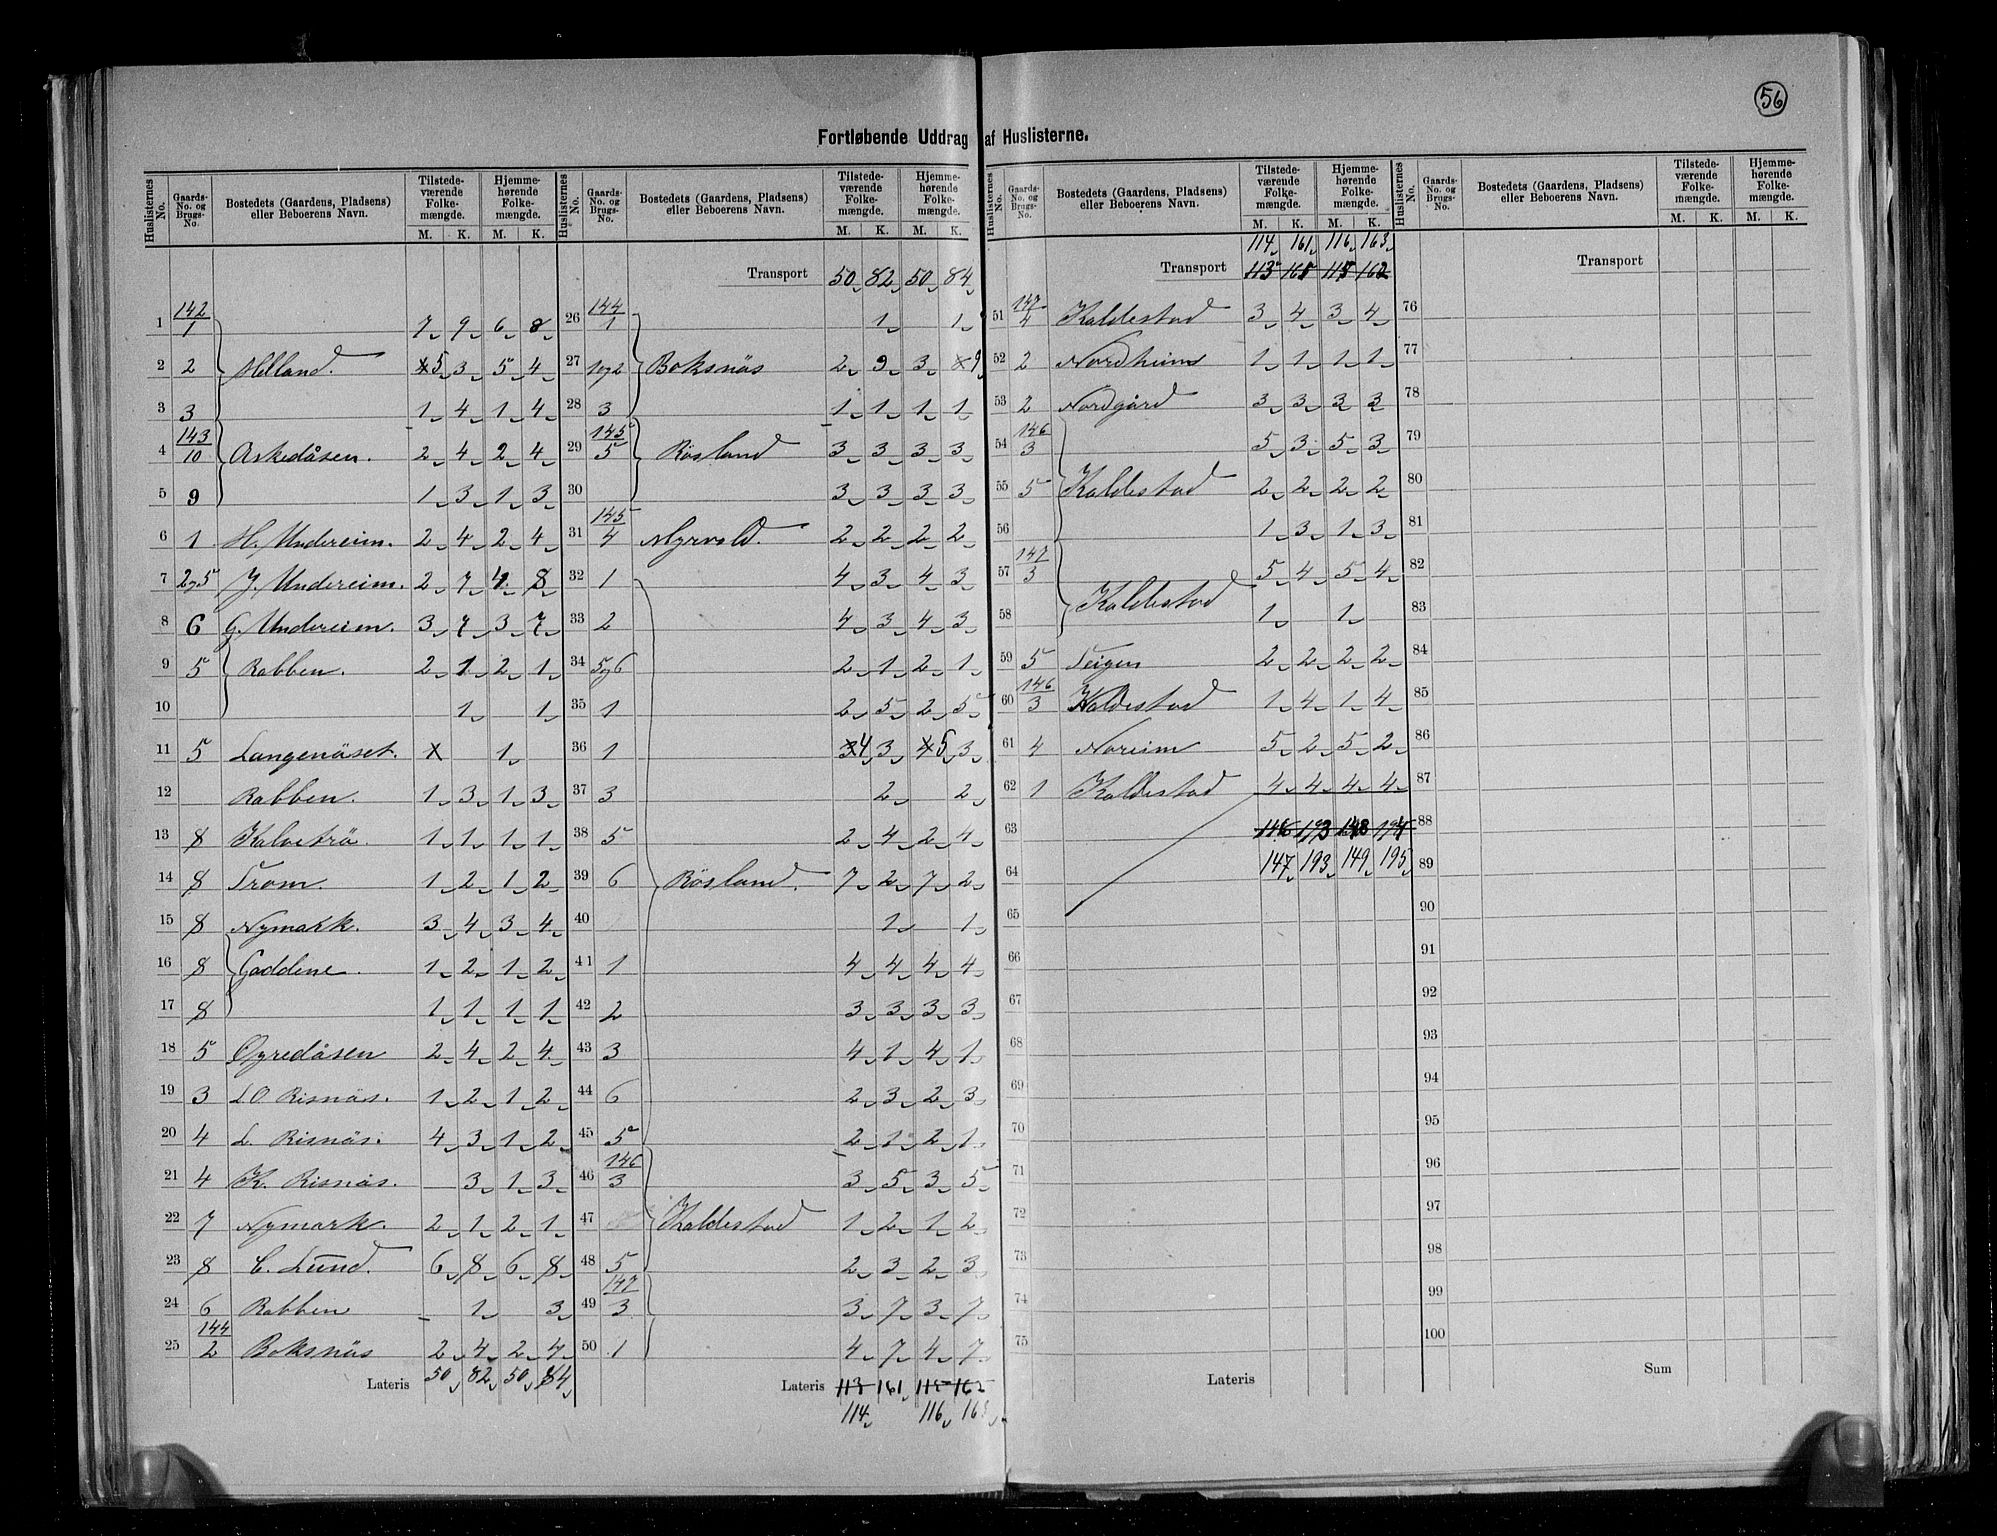 56
Fortløbende Uddrag af Huslisterne.
Huslisternes No. Gaards-No. og Brugs-No. Bostedets (Gaardens, Pladsens) eller Beboerens Navn. Tilstedeværende Folkemængde. Hjemmehørende Folkemængde.
M. K. M. K.
1 142/1 7 9 6 8
2 2 Helland. 5 3 5 4
3 3 1 4 1 4
4 143/10 Askedåsen. 2 4 2 4
5 9 1 3 1 3
6 1 H. Undereim. 2 4 2 4
7 2og5 J. Undereim. 2 7 4 8
8 6 G. Undereim. 3 7 3 7
9 5 Rabben. 2 1 2 1
10 1 1
11 5 Langenäset. x 1
12 Rabben. 1 3 1 3
13 8 Kalvetrö. 1 1 1 1
14 8 Trom. 1 2 1 2
15 8 Nymark. 3 4 3 4
16 8 Gaddene. 1 2 1 2
17 8 1 1 1 1
18 5 Öyredåsen 2 4 2 4
19 3 L O Risnäs. 1 2 1 2
20 4 L. Risnäs. 4 3 1 2
21 4 K. Risnäs. 3 1 3
22 7 Nymark. 2 1 2 1
23 8 C. Lund. 6 8 6 8
24 6 Rabben - 1 3
25 144/2 Boksnäs 2 4 2 4
Lateris 50 82 50 84
Huslisternes No. Gaards-No. og Brugs-No. Bostedets (Gaardens, Pladsens) eller Beboerens Navn. Tilstedeværende Folkemængde. Hjemmehørende Folkemængde.
M. K. M. K.
Transport 50 82 50 84
26 144/1 1 1
27 1og2 Boksnäs 2 9 3 9
28 3 1 1 1 1
29 145/5 Rösland 3 3 3 3
30 3 3 3 3
31 145/4 Myrvold. 2 2 2 2
32 1 4 3 4 3
33 2 4 3 4 3
34 5og6 2 1 2 1
35 1 2 5 2 5
36 1 4 3 5 3
37 3 2 2
38 5 2 4 2 4
39 6 Rösland. 7 2 7 2
40 1 1
41 1 4 4 4 4
42 2 3 3 3 3
43 3 4 1 4 1
44 6 2 3 2 3
45 5 2 1 2 1
46 146/3 3 5 3 5
47 Kaldestad 1 2 1 2
48 5 2 3 2 3
49 147/3 3 7 3 7
50 1 4 7 4 7
Lateris 113 161 115 162
114 116 163
Huslisternes No. Gaards-No. og Brugs-No. Bostedets (Gaardens, Pladsens) eller Beboerens Navn. Tilstedeværende Folkemængde. Hjemmehørende Folkemængde.
M. K. M. K.
114 161 116 163
Transport 113 161 115 162
51 147/4 Kaldestad 3 4 3 4
52 2 Nordheim 1 1 1 1
53 2 Nordgård 3 3 3 3
54 146/3 5 3 5 3
55 5 Kaldestad 2 2 2 2
56 1 3 1 3
57 147/3 5 4 5 4
58 Kaldestad 1 1
59 5 Teigen 2 2 2 2
60 146/3 Kaldestad 1 4 1 4
61 4 Noreim 5 2 5 2
62 1 Kaldestad 4 4 4 4
63 146 193 148 194
64 147 193 149 195
65
66
67
68
69
70
71
72
73
74
75
Lateris
Huslisternes No. Gaards-No. og Brugs-No. Bostedets (Gaardens, Pladsens) eller Beboerens Navn. Tilstedeværende Folkemængde. Hjemmehørende Folkemængde.
M. K. M. K.
Transport
76
77
78
79
80
81
82
83
84
85
86
87
88
89
90
91
92
93
94
95
96
97
98
99
100
Sum